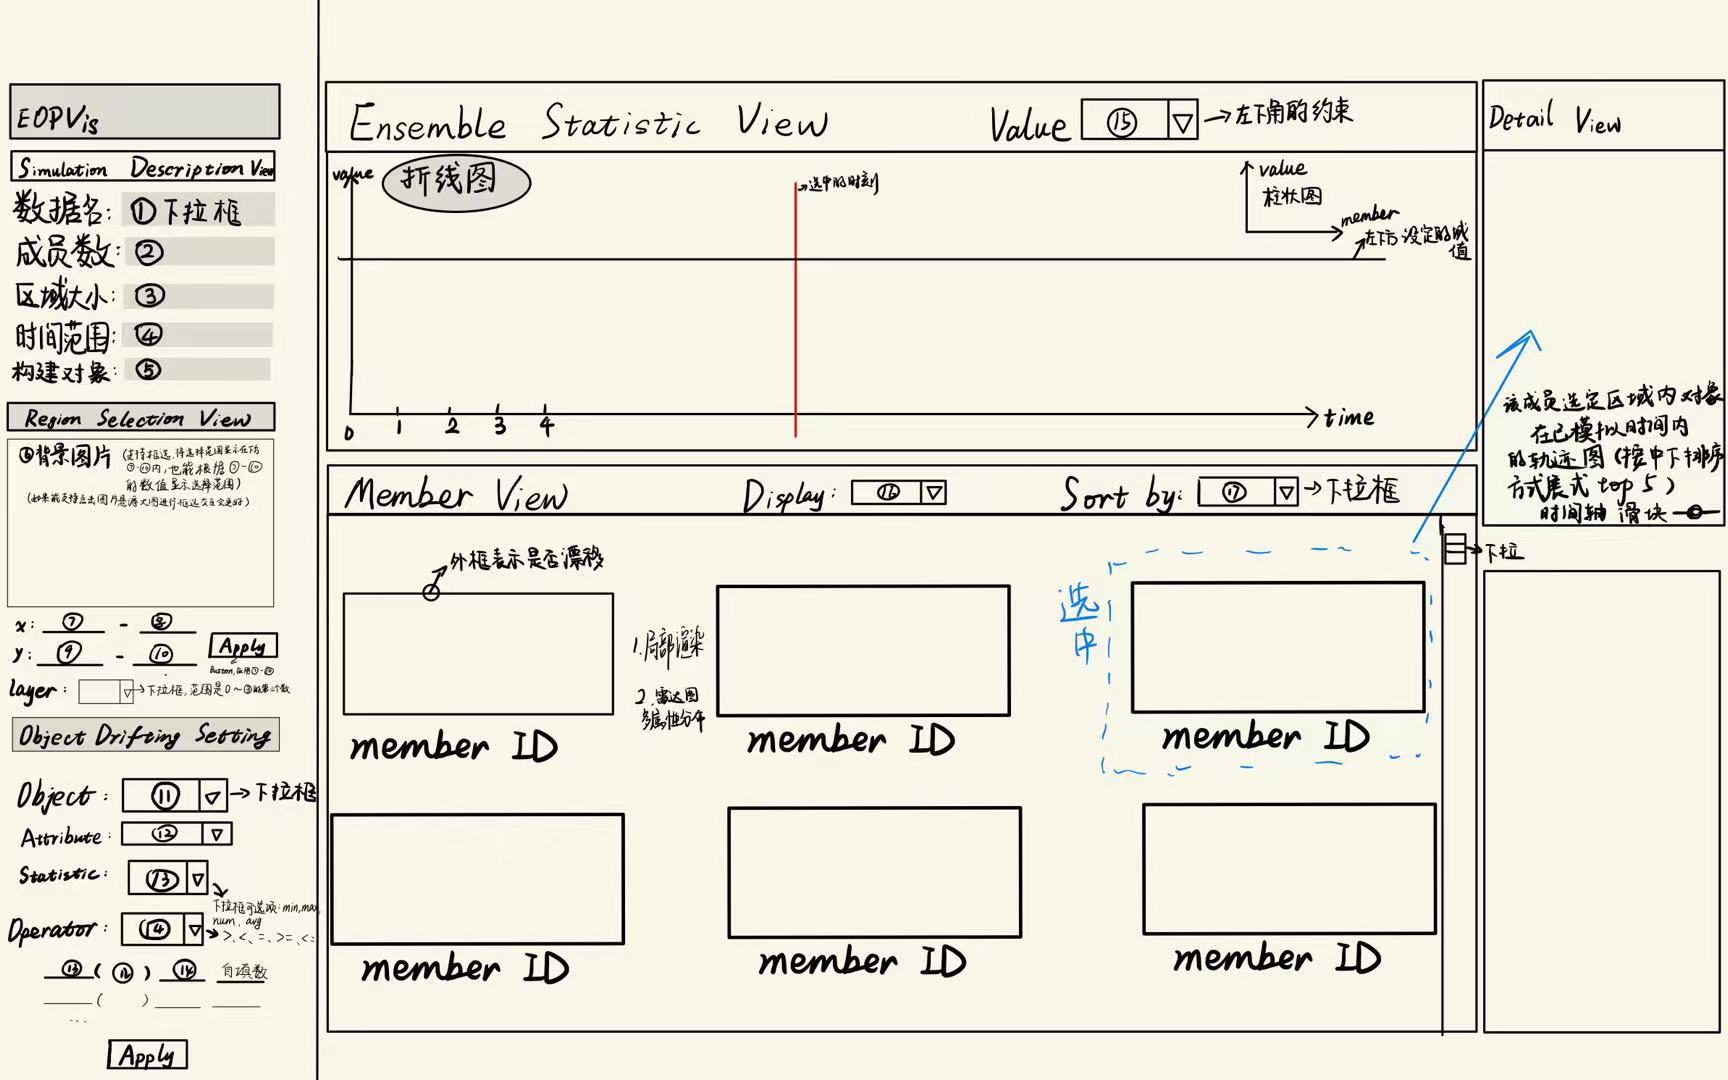 EOPVis
Simulation Description View
数据名: ①下拉框
成员数: ②
区域大小: ③
时间范围: ④
构建对象: ⑤
Region Selection View
⑥背景图片 (支持框选,待选择范围显示在下方
⑦-⑩内,也能根据⑦-⑩
的数值显示选择范围)
(如果能支持点击图片悬浮大图进行框选交互会更好)
x: ⑦ - ⑧
y: ⑨ - ⑩ Apply
Button,应用⑦-⑩
layer: →下拉框,范围是0~③的第三个数
Object Drifting Setting
Object: ⑪ →下拉框
Attribute: ⑫
Statistic: ⑬
下拉框可选项: min,max,
num, avg
Operator: ⑭ → >、<、=、>=、<=
⑬ ( ⑫ ) ⑭ 自填数
( )
...
Apply
Ensemble Statistic View Value ⑮ →左下角的约束
value 折线图
选中的时刻
value
柱状图
member
左下方设定的域
值
0 1 2 3 4 time
Member View Display: ⑯ Sort by: ⑰ →下拉框
外框表示是否漂移
1.局部渲染
2.雷达图
多属性分布
选
中
下拉
member ID
member ID
member ID
member ID
member ID
member ID
Detail View
该成员选定区域内对象
在已模拟时间内
的轨迹图(按中下排序
方式展式 top 5)
时间轴 滑块